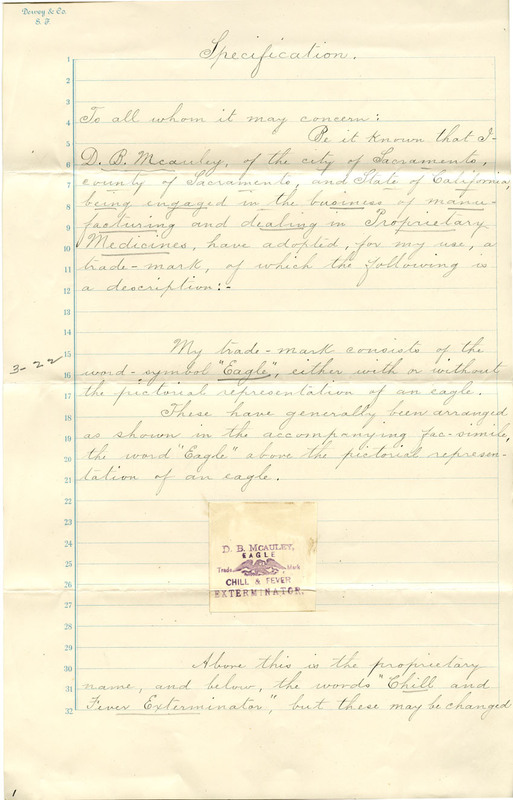 Dewey & Co.
S. F.
Specification.
1
2
3
4
To all whom it may concern:
5
Be it known that I
6
D. B. Mcauley, of the city of Sacramento,
7
county of Sacramento, and State of California,
8
being engaged in the business of manu-
9
facturing and dealing in Proprietary
10
Medicines, have adopted, for my use, a
11
trade-mark, of which the following is
12
a description:-
13
14
15
My trade-mark consists of the
3-22
16
word-symbol "Eagle", either with or without
17
the pictorial representation of an eagle.
18
These have generally been arranged
19
as shown in the accompanying fac-simile,
20
the word "Eagle" above the pictorial represen-
21
tation of an eagle.
22
23
24
D. B. MCAULEY,
25
EAGLE
Trade Mark
26
CHILL & FEVER
EXTERMINATOR.
27
28
29
30
Above this is the proprietary
31
name, and below, the words "Chill and
32
Fever Exterminator", but these may be changed
1